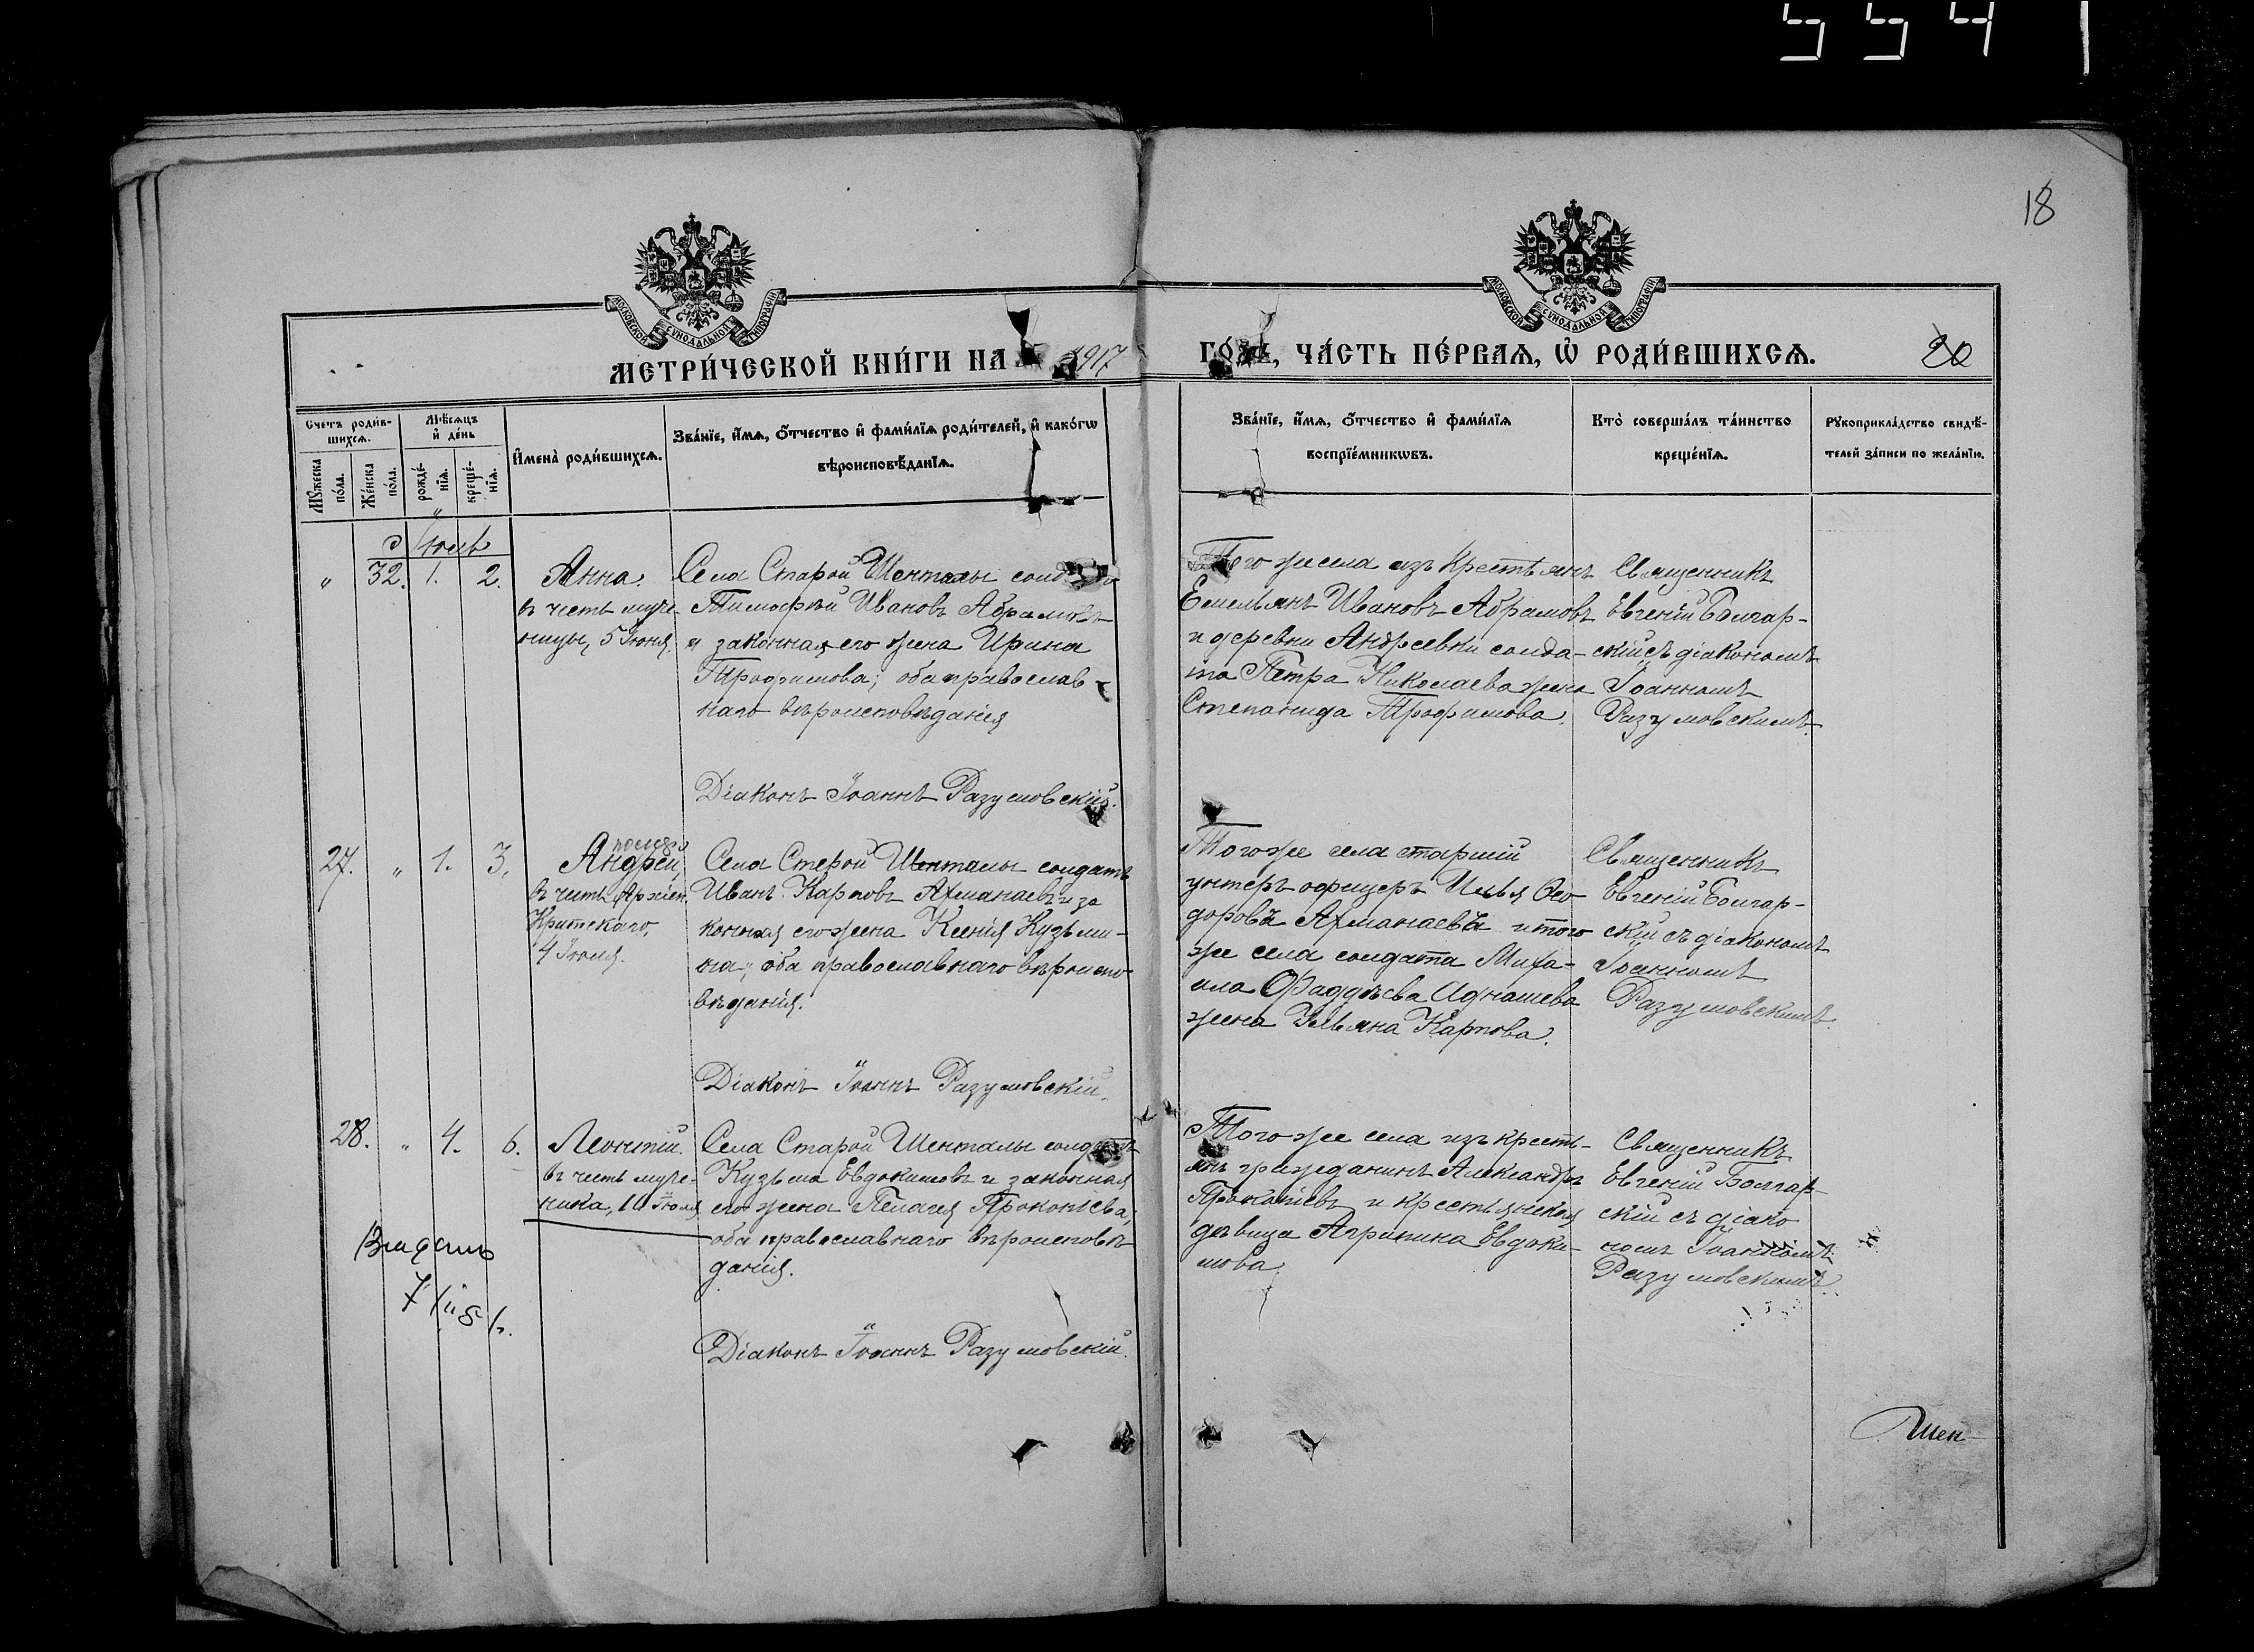 5541
18
МОСКОВСКОЙ СѴНОДАЛЬНОЙ ТИПОГРАФІИ
МОСКОВСКОЙ СѴНОДАЛЬНОЙ ТИПОГРАФІИ
МЕТРИ́ЧЕСКОЙ КНИ́ГИ НА 1917
ГО́ДЪ, ЧА́СТЬ ПЕ́РВАѦ, Ѡ҆ РОДИ́ВШИХСѦ.
20
Счетъ роди́вшихсѧ.
Мѣ́сѧцъ и҆ де́нь
Мꙋ́жеска по́ла.
Же́нска по́ла.
рожде́нїѧ.
креще́нїѧ.
И҆мена̀ роди́вшихсѧ.
Зва́нїе, и҆́мѧ, ѻ҆́тчество и҆ фами́лїѧ роди́телей, и҆ како́гѡ
вѣроисповѣ́данїѧ.
Зва́нїе, и҆́мѧ, ѻ҆́тчество и҆ фами́лїѧ
воспрїе́мникѡвъ.
Кто̀ соверша́лъ та́инство
креще́нїѧ.
Рꙋкоприкла́дство свидѣ́-
телей за́писи по жела́нїю.
" 32. 1. 2.
Анна.
въ честь муче-
ницы, 5 Іюня.
Села Старой Шенталы солдатъ
Тимофѣй Ивановъ Абрамовъ
и законная его жена Ирина
Трофимова; оба православ-
наго вѣроисповѣданія
Діаконъ Іоаннъ Разумовскій.
Того же села изъ крестьянъ
Емельянъ Ивановъ Абрамовъ
и деревни Андреевки солда-
та Петра Николаева жена
Степанида Трофимова.
Священникъ
Евгеній Болгар-
скій съ діакономъ
Іоанномъ
Разумовскимъ.
27. " 1. 3.
Андрей,
въ честь Архіеп.
Критскаго,
4 Іюля.
Села Старой Шенталы солдатъ
Иванъ Карповъ Ахманаевъ и за
конная его жена Ксенія Кузьми-
на; оба православнаго вѣроиспо-
вѣданія.
Діаконъ Іоаннъ Разумовскій.
Того же села старшій
унтеръ офицеръ Илья Ѳео
доровъ Ахманаевъ и того
же села солдата Миха-
ила Фаддѣева Аднашева
жена Ульяна Карпова.
Священникъ
Евгеній Болгар-
скій съ діакономъ
Іоанномъ
Разумовскимъ.
28. " 4. 6.
Леонтій.
въ честь муче-
ника, 10 Іюля
Села Старой Шенталы солдатъ
Кузьма Евдокимовъ и законная
его жена Пелагея Прокопіева;
оба православнаго вѣроисповѣ-
данія.
Діаконъ Іоаннъ Разумовскій.
Того же села изъ кресть-
янъ гражданинъ Александръ
Прокопіевъ и крестьянская
дѣвица Агрипина Евдоки-
мова
Священникъ
Евгеній Болгар-
скій съ діако
номъ Іоанномъ
Разумовскимъ.
Шен-